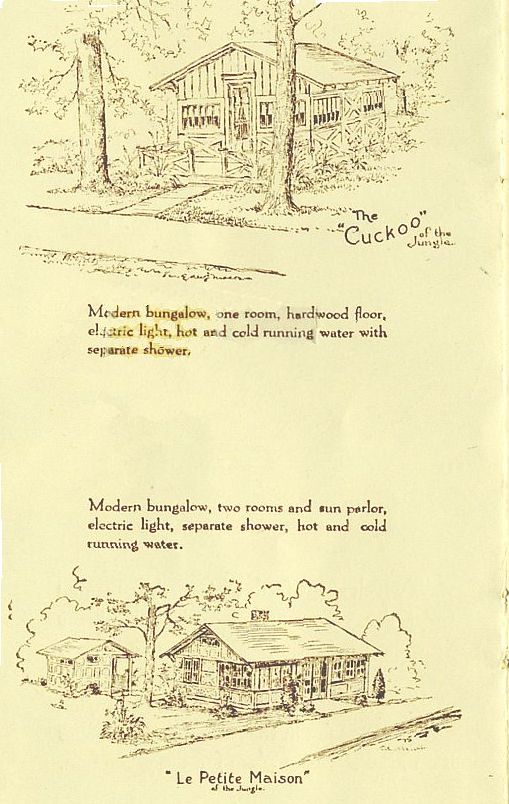 The
"Cuckoo"
of the
Jungle.
Modern bungalow, one room, hardwood floor,
electric light, hot and cold running water with
separate shower.
Modern bungalow, two rooms and sun parlor,
electric light, separate shower, hot and cold
running water.
"Le Petite Maison"
of the Jungle.